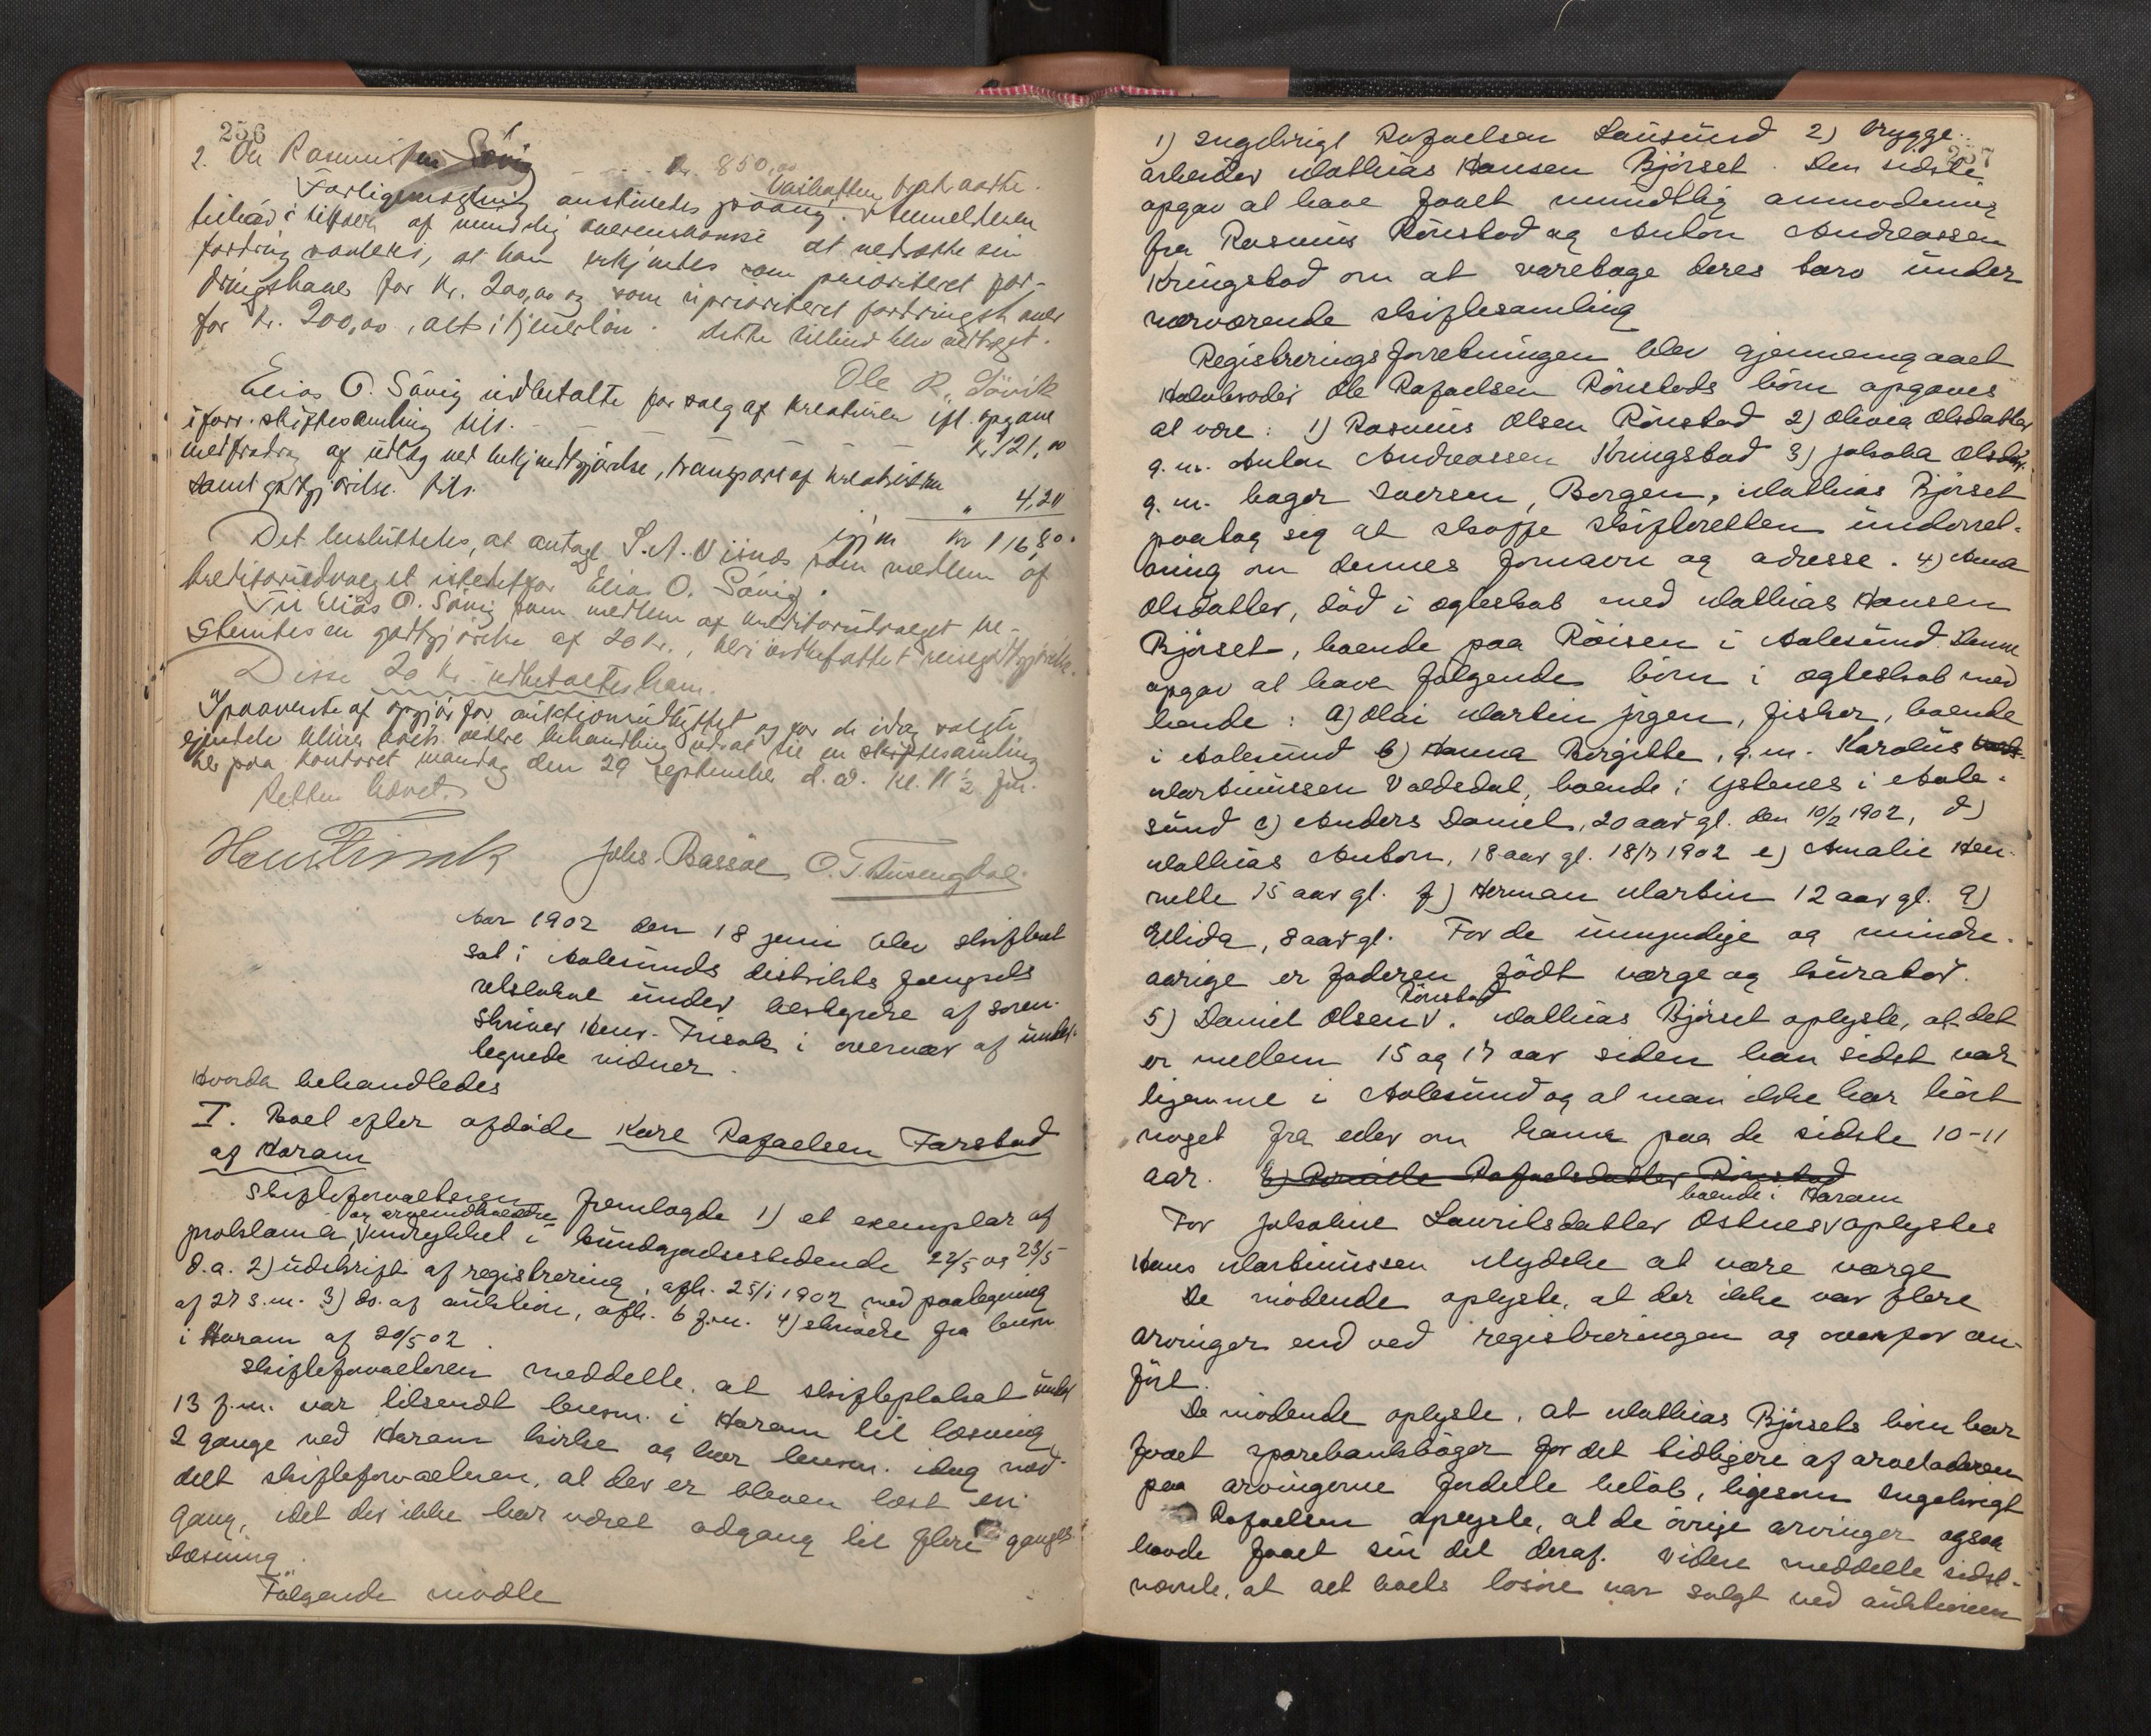 256
2. Ole Rasmussen Søvig - - - - Kr. 850,00
Forligsmægling anstilledes paany. Anmelderen frafaldte
tilbød i tilfælde af mindelig overenskomst at nedsætte sin
fordring saaledes, at han erkjendtes som prioriteret for-
dringshaver for Kr. 200,00 og som uprioriteret fordringshaver
for Kr. 200,00, alt i tjenerløn. Dette tilbud blev vedtaget.
Ole R. Sövik
Elias O. Sövig udbetalte for salg af kreaturer ifl. opgave
i forr. skiftesamling tils. - - - Kr. 121,00
med fradrag af udlæg ved bekjendtgjörelse, transport af kreaturer
samt godtgjörelse tils. " 4,20
igjen Kr 116,80.
Det besluttedes, at antage S. A. Visnes som medlem af
kreditorudvalget istedetfor Elias O. Sövig.
Til Elias O. Sövig som medlem af kreditorudvalget be-
stemtes en godtgjörelse af 20 Kr., heri indbefattet reisegodtgjörelse.
Disse 20 Kr. udbetaltes ham.
I paavente af opgjör for auktionsudbyttet og for de idag solgte
eiendele blev boets videre behandling udsat til en skiftesamling
her paa kontoret mandag den 29 september d. a. kl. 11 1/2 fm.
Retten hævet.
Hans Frisak Johs. Bassöe O. T. Ausengdal
Aar 1902 den 18 juni blev skifteret
sat i Aalesunds distrikts fængsels
retslokal under bestyrelse af soren-
skriver Henr. Frisak i overvær af under-
tegnede vidner.
Hvorda behandledes
I. Boet efter afdöde Karl Rafaelsen Farstad
af Haram
Skifteforvalteren fremlagde 1) et exemplar af
og arveindkaldelse
proklama, v indrykket i kundgjörelsestidende 22/5 og 23/5
d.a. 2) udskrift af registrering, afh. 25/1 1902 med paategning
af 27 s.m. 3) do. af auktion, afh. 6 f.m. 4) skrivelse fra lensm.
i Haram af 20/5 02.
Skifteforvalteren meddelte, at skifteplakat under
13 f.m. var tilsendt lensm. i Haram til læsning
2 gange ved Haram kirke og har lensm. idag med-
delt skifteforvalteren, at der er bleven læst en
gang, idet der ikke har været adgang til flere ganges
læsning.
Følgende mødte
257
1) Ingebrigt Rafaelsen Lausund 2) brygge-
arbeider Mathias Hansen Björset. Den sidste
opgav at have faaet mundtlig anmodning
fra Rasmus Rönstad og Anton Andreassen
Kringstad om at varetage deres tarv under
nærværende skiftesamling
Registreringsforretningen blev gjennemgaaet
Halvbroder Ole Rafaelsen Rönstads börn opgaves
at være: 1) Rasmus Olsen Rönstad 2) Olivia Olsdatter
g.m. Anton Andreassen Kringstad 3) Jakoba Olsdtr.
g.m. bager Iversen, Bergen, Mathias Björset
paatog sig at skaffe skifteretten underret-
ning om dennes fornavn og adresse. 4) Anna
Olsdatter, död i ægteskab med Mathias Hansen
Björset, boende paa Röisen i Aalesund. Denne
opgav at have fölgende börn i ægteskab med
hende: a) Olai Martin Jrgen, fisker, boende
i Aalesund b) Hanna Birgitte, g.m. Karolus
Martinussen Valdsdal, boende i Ystenes i Aale-
sund c) Anders Daniel, 20 aar gl. den 10/2 1902, d)
Mathias Anton, 18 aar gl. 18/7 1902 e) Amalie Hen-
nelle 15 aar gl. f) Herman Martin 12 aar gl. g)
Ellida, 8 aar gl. For de umyndige og mindre-
aarige er faderen födt værge og kurator.
Rönstad
5) Daniel Olsen v. Mathias Björset oplyste, at det
er mellem 15 og 17 aar siden han sidst var
hjemme i Aalesund og at man ikke har hört
noget fra eller om ham paa de sidste 10-11
aar. 6) Rafaelsdatter Rönstad
boende i Haram
For Jakobine Lauritsdatter Östnes v oplystes
Hans Martinussen Mydske at være værge
De mödende oplyste, at der ikke var flere
arvinger end ved registreringen og ovenfor an-
fört.
De mödende oplyste, at Mathias Björsets börn har
faaet sparebankböger for det tidligere af arveladeren
paa arvingerne fordelte belöb, ligesom Ingebrigt
Rafaelsen oplyste, at de övrige arvinger ogsaa
havde faaet sin del deraf. Videre meddelte sidst-
nævnte, at alt boets lösöre var solgt ved auktionen